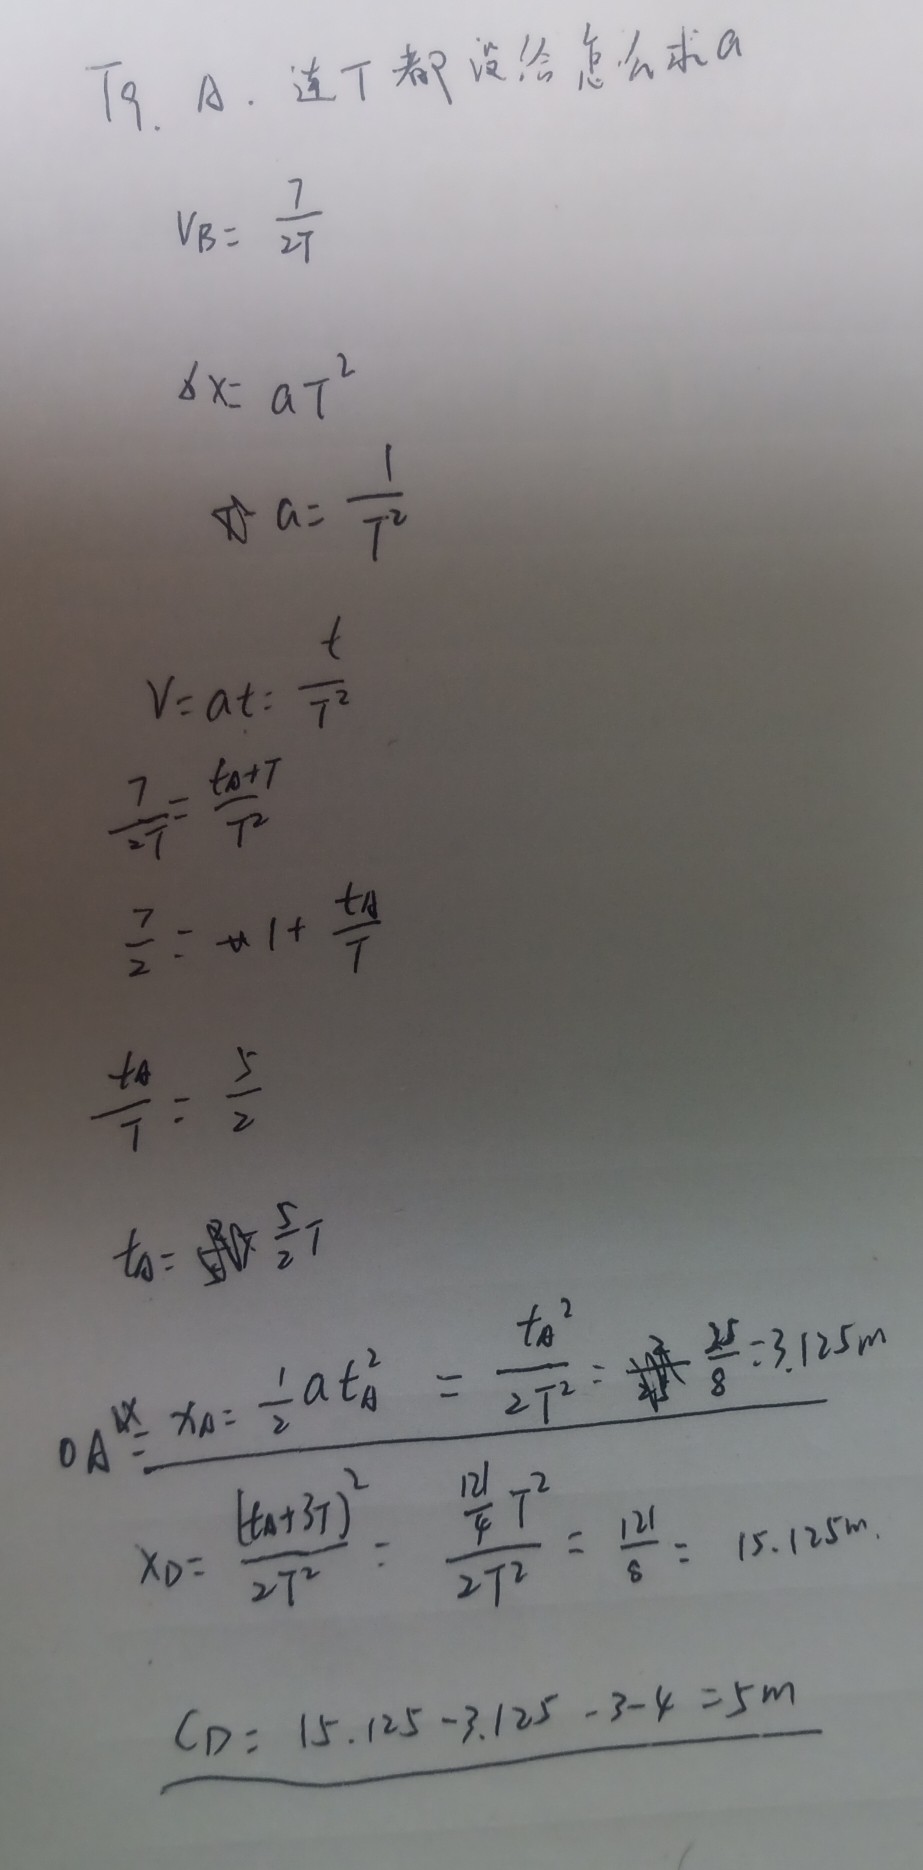 T9. A. 连T都没给怎么求a
VB = 7/2T
Δx = aT²
a = 1/T²
V = at = t/T²
7/2T = (tA+T)/T²
7/2 = 1 + tA/T
tA/T = 5/2
tA = 5/2 T
OA = xA = 1/2 a tA² = tA²/2T² = 25/8 = 3.125m
xD = (tA+3T)²/2T² = (121/4 T²)/2T² = 121/8 = 15.125m.
CD = 15.125 - 3.125 - 3 - 4 = 5m